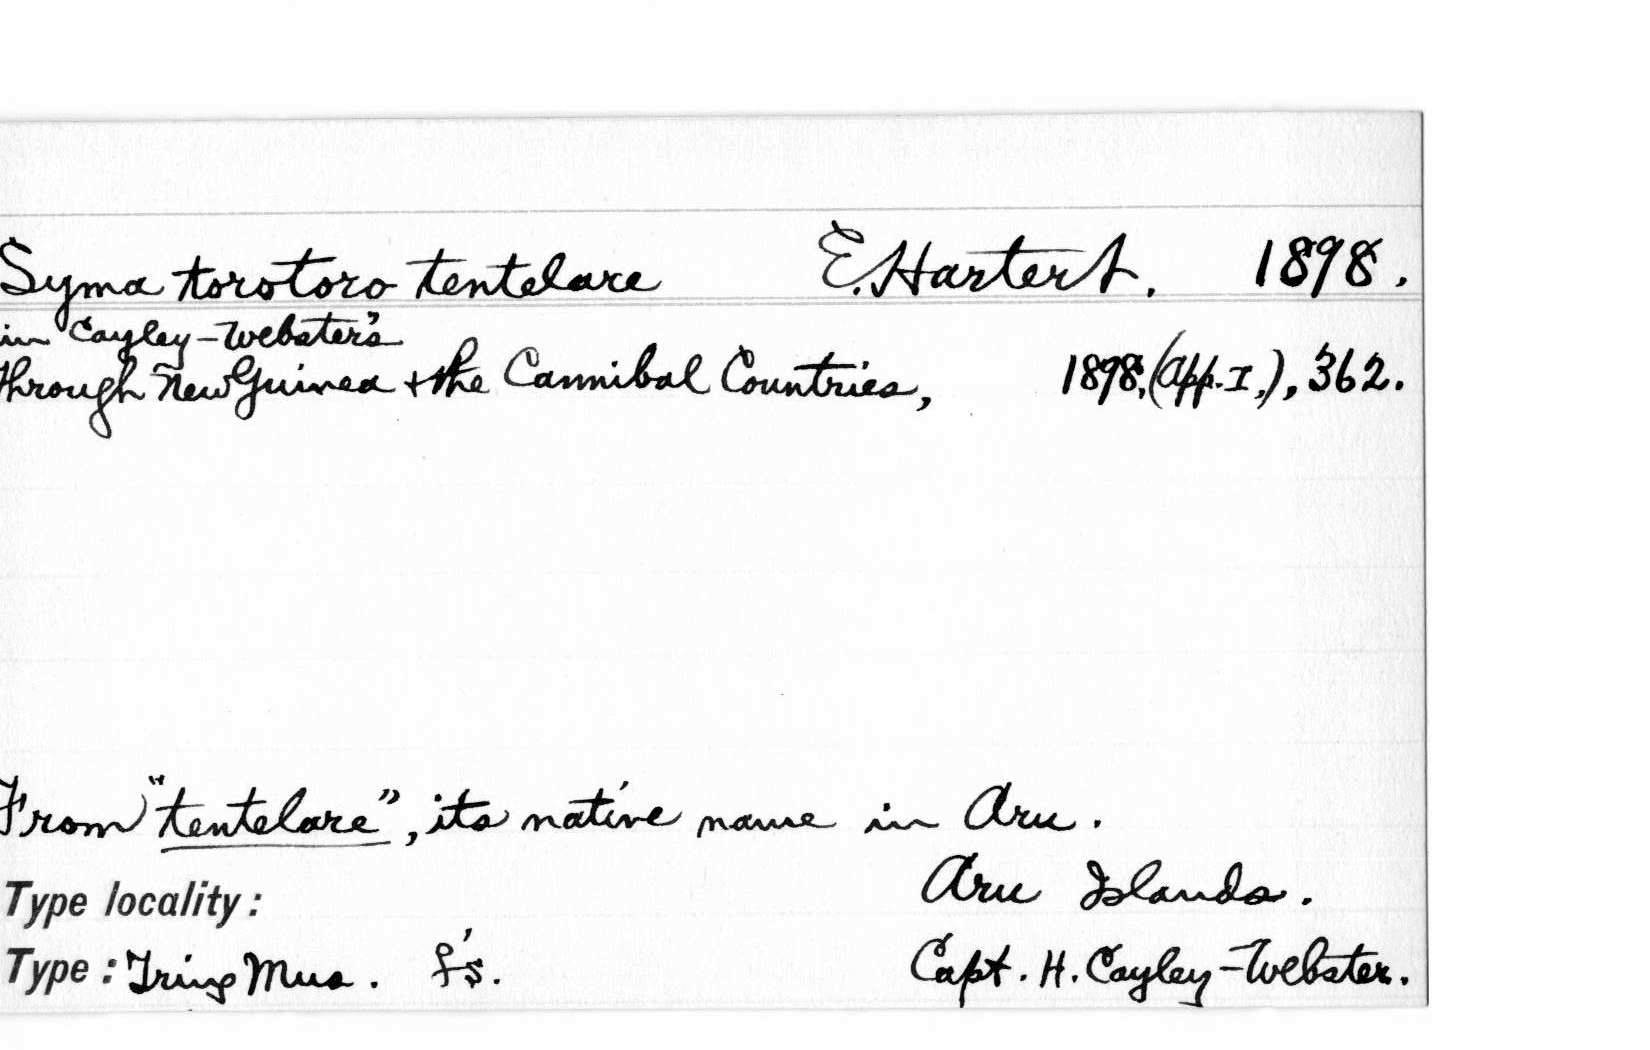 Syma torotoro tentelare E. Hartert. 1898.
in Cayley-Webster's
Through New Guinea + the Cannibal Countries, 1898, (App. I.), 362.
From "tentelare", its native name in Aru.
Type locality: Aru Islands.
Type: Tring Mus. Capt. H. Cayley-Webster.